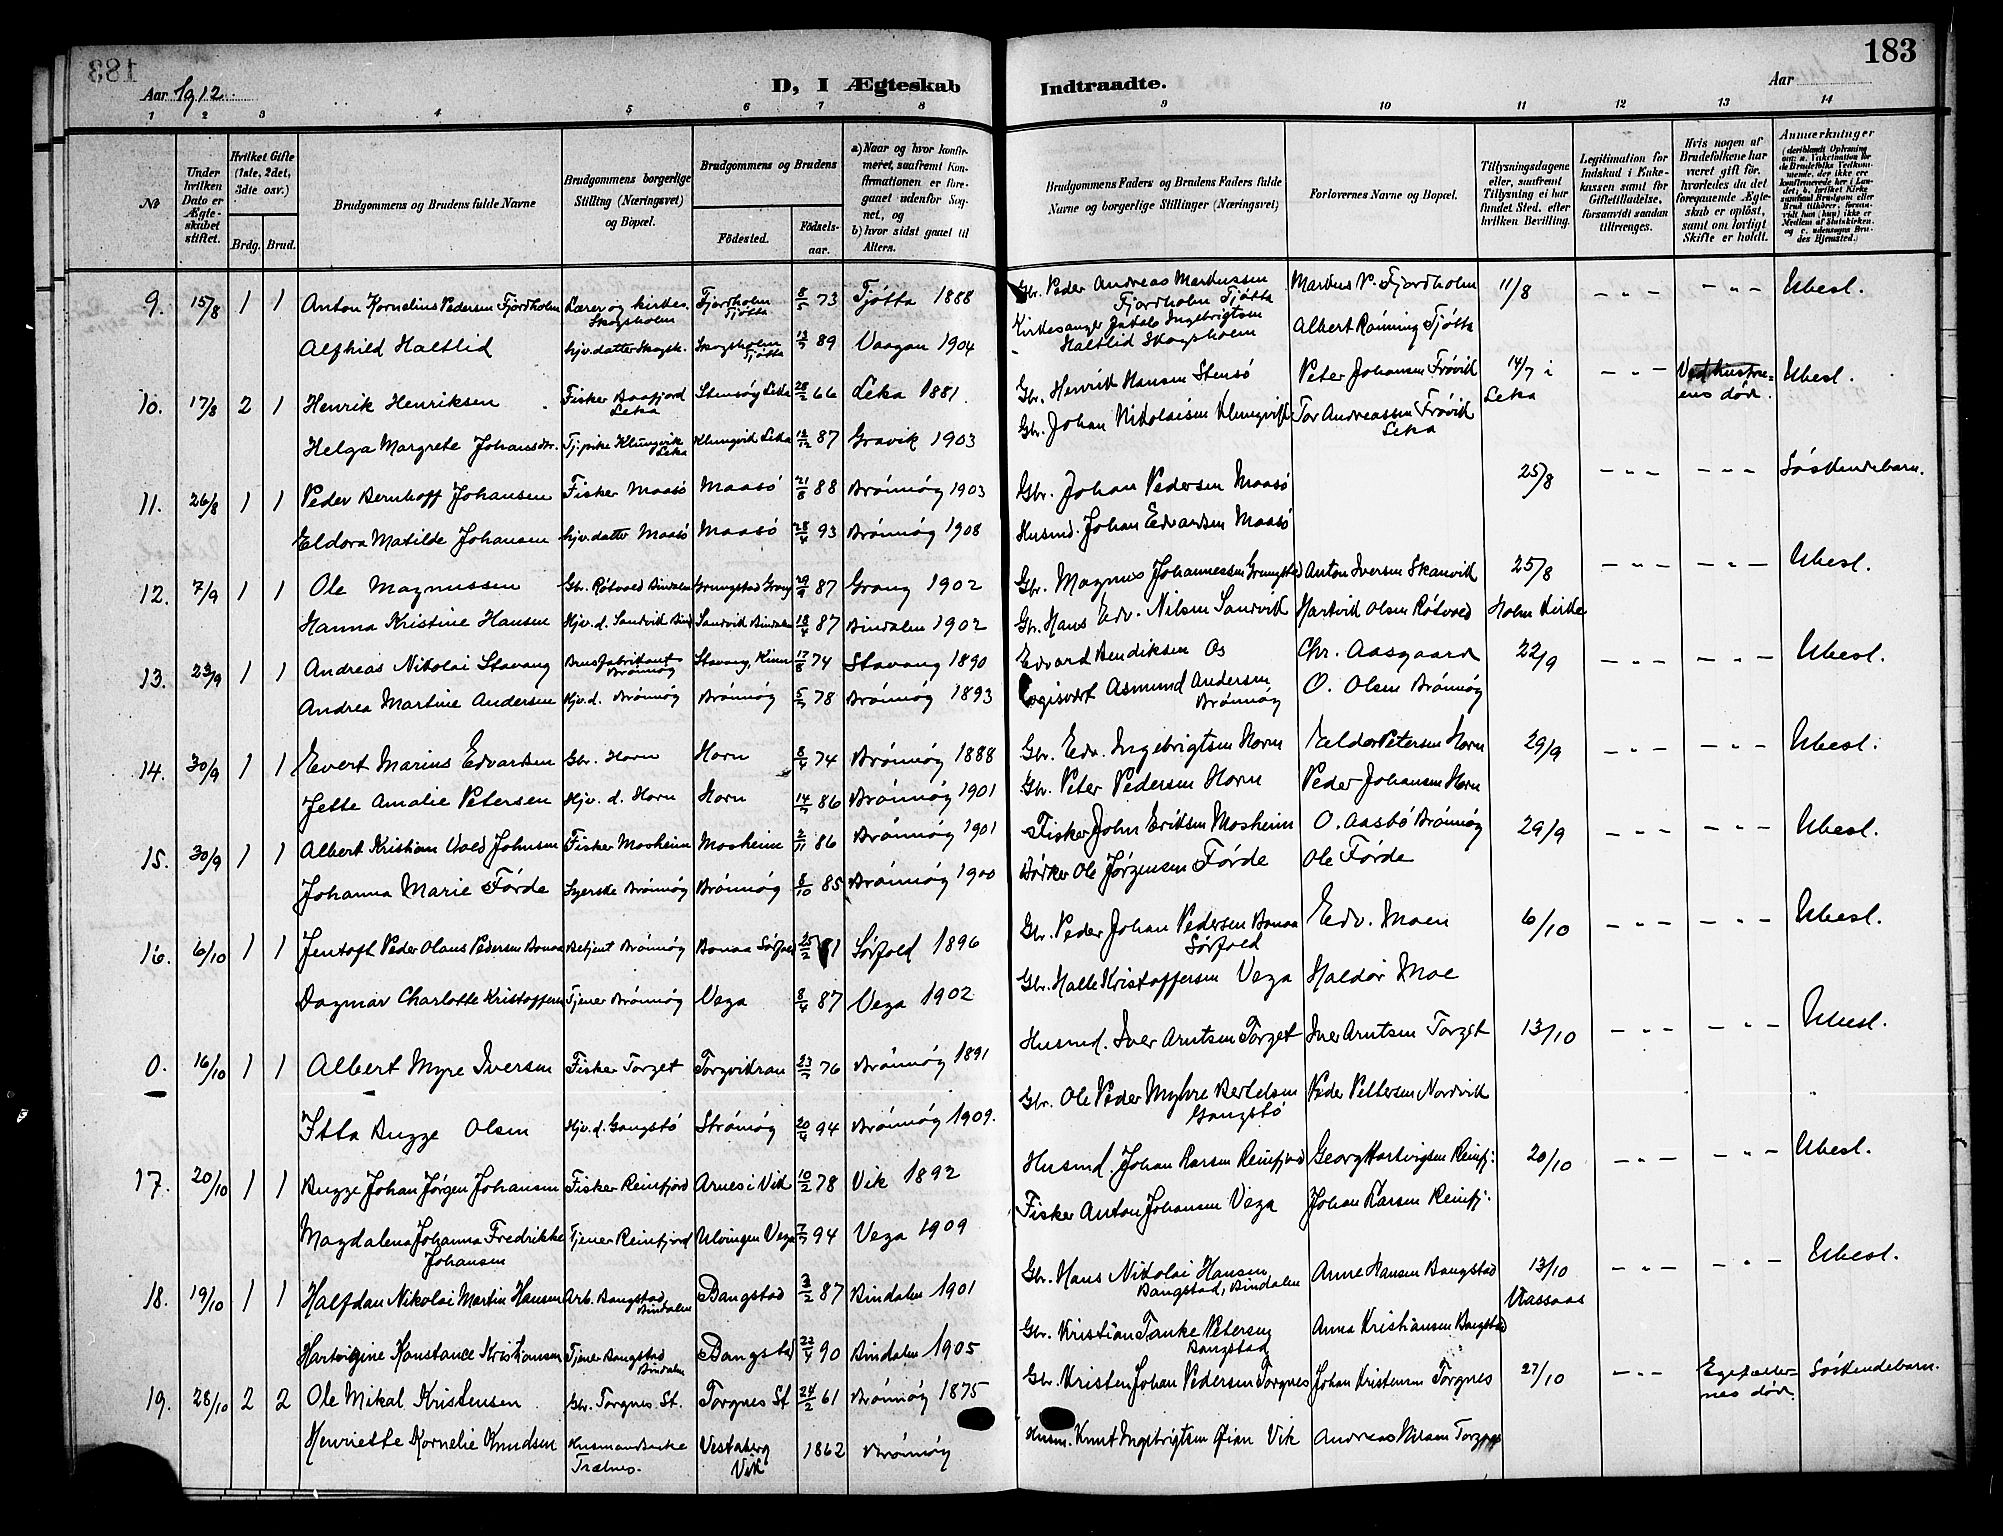 183
Aar 1912.
D, I Ægteskab Indtraadte.
Aar
1 2 3 4 5 6 7 8 9 10 11 12 13 14
No
Under hvilken Dato er Ægteskabet stiftet.
Hvilket Gifte (1ste, 2det, 3die osv.)
Brdg. Brud.
Brudgommens og Brudens fulde Navne
Brudgommens borgerlige Stilling (Næringsvei) og Bopæl.
Brudgommens og Brudens
Fødested. Fødselsaar.
a) Naar og hvor konfirmeret, saafremt Konfirmationen er foregaaet udenfor Sognet, og
b) hvor sidst gaaet til Alters.
Brudgommens Faders og Brudens Faders fulde Navne og borgerlige Stillinger (Næringsvei)
Forlovernes Navne og Bopæl.
Tillysningsdagene eller, saafremt Tillysning ei har fundet Sted, efter hvilken Bevilling.
Legitimation for Indskud i Enkekassen samt for Giftetilladelse, forsaavidt saadan tiltrænges.
Hvis nogen af Brudefolkene har været gift før, hvorledes da det foregaaende Ægteskab er opløst, samt om lovligt Skifte er holdt.
Anmærkninger
9. 15/8 1 1 Anton Kornelius Pedersen Fjordholm Lærer og kirkes. Skogsholm Fjordholm Tjøtta 8/5 73 Tjøtta 1888 Gbr. Peder Andreas Markussen Fjordholm Tjøtta Markus P. Fjordholm 11/8 – " – Ubesl.
Alfhild Haltlid hjv. datter Skogsh. Skogsholm Tjøtta 89 Vaagan 1904 Kirkesanger Jakob Ingebrigtsen Haltlid Skogsholm Albert Rønning Tjøtta
10. 17/8 2 1 Henrik Henriksen Fisker Leka Stensøy Leka 28/2 66 Leka 1881. Gbr. Henrik Hansen Stensø Peter Johansen Frøvik 14/7 i Leka – " – Ved hustruens død. Ubesl.
Helga Margrete Johansdtr. Tj.pike Klungvik Leka Klungvik Leka 87 Gravik 1903 Gbr. Johan Nikolaisen Klungvik Tor Andreassen Frøvik Leka
11. 26/8 1 1 Peder Bernhoff Johansen Fisker Maasø Maasø 21/8 88 Brønnøy 1903 Gbr. Johan Pedersen Maasø 25/8 – " – – " – Søskendebarn.
Eldora Matilde Johansen hjv. datter Maasø Maasø 28/4 93 Brønnøy 1908 Husmd. Johan Edvardsen Maasø
12. 7/9 1 1 Ole Magnussen Gbr. Røtvold Bindalen Grungstad Grong 87 Grong 1902 Gbr. Magnus Johannessen Grungstad Anton Iversen Skarvik 25/8 – " – – " – Ubesl.
Hanna Kristine Hansen Hjv. d. Sandvik Bind Sandvik Bindalen 18/4 87 Bindalen 1902 Gbr. Hans Edv. Nilsen Sandvik Hartvik Olsen Røtvold Holm Kirke
13. 23/9 1 1 Andreas Nikolai Stavang Brusfabrikant Brønnøy Stavang, Kinn 17/8 74 Stavang 1890 Edvard Bendiksen Os Chr. Aasgaard 22/9 – " – – " – Ubesl.
Andrea Martine Andersen Hjv. d. Brønnøy Brønnøy 5/7 78 Brønnøy 1893 Logisvert Asmund Andersen Brønnøy O. Olsen Brønnøy
14. 30/9 1 1 Evert Marius Edvardsen Gbr. Horn Horn 8/4 74 Brønnøy 1888 Gbr. Edv. Ingebrigtsen Horn Eldor Petersen Horn 29/9 – " – – " – Ubesl.
Jette Amalie Petersen Hjv. d. Horn Horn 14/7 86 Brønnøy 1901 Gbr. Peter Pedersen Horn Peder Johansen Horn
15. 30/9 1 1 Albert Kristian Vold Johnsen Fisker Mosheim Mosheim 2/11 86 Brønnøy 1901 Fisker John Eriksen Mosheim O. Aasbø Brønnøy 29/9 – " – – " – Ubesl.
Johanna Marie Førde Syerske Brønnøy Brønnøy 8/10 85 Brønnøy 1900 Bødker Ole Jørgensen Førde Ole Førde
16. 6/10 1 1 Jentoft Peder Olaus Pedersen Bonaa Betjent Brønnøy Bonaa Sørfold 25/2 81 Sørfold 1896 Gbr. Peder Johan Pedersen Bonaa Sørfold Edv. Moen 6/10 – " – – " – Ubesl.
Dagmar Charlotte Kristoffersen Tjener Brønnøy Vega 8/4 87 Vega 1902 Gbr. Halle Kristoffersen Vega Haldor Moe
0. 16/10 1 1 Albert Myre Iversen Fisker Torget Torgvikran 23/7 76 Brønnøy 1891 Husmd. Iver Arntsen Torget Iver Arntsen Torget 13/10 – " – – " – Ubesl.
Itta Bugge Olsen Hjv. d. Gangstø Strømøy 20/4 94 Brønnøy 1909. Gbr. Ole Peder Myhre Bertelsen Gangstø Peder Pettersen Nordvik
17. 20/10 1 1 Bugge Johan Jørgen Johansen Fisker Reinfjord Arnes i Vik 10/2 78 Vik 1892 Husmd. Johan Larsen Reinfjord Georg Hartvigsen Reinfj: 20/10 – " – – " – Ubesl.
Magdalena Johanna Fredrikke Johansen Tjener Reinfjord Ulvingen Vega 7/7 94 Vega 1909 Fisker Anton Johansen Vega Johan Larsen Reinfj:
18. 19/10 1 1 Halfdan Nikolai Martin Hansen Arb. Bangstad, Bindalen Bangstad 3/2 87 Bindalen 1901 Gbr. Hans Nikolai Hansen Bangstad, Bindalen Anne Hansen Bangstad 13/10 Vassaas – " – – " – Ubesl.
Hartvigine Konstance Kristiansen Tjener Bangstad Bindalen Bangstad 22/4 90 Bindalen 1905 Gbr. Kristian Tanke Petersen Bangstad Anna Kristiansen Bangstad
19. 28/10 2 2 Ole Mikal Kristensen Gbr. Torgnes St. Torgnes St 24/2 61 Brønnøy 1875 Gbr. Kristen Johan Pedersen Torgnes Johan Kristensen Torgnes 27/10 – " – Egtefellernes død Søskendebarn.
Henriette Kornelie Knudsen Husmandsenke Trælnes. Vestaberg Vik 1862 Brønnøy Husm. Knut Ingebrigtsen Øian Vik Andreas Nilsen Torgnes